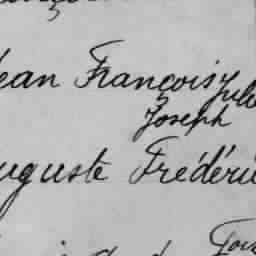 ean François Jule
Joseph
uguste Frédéri